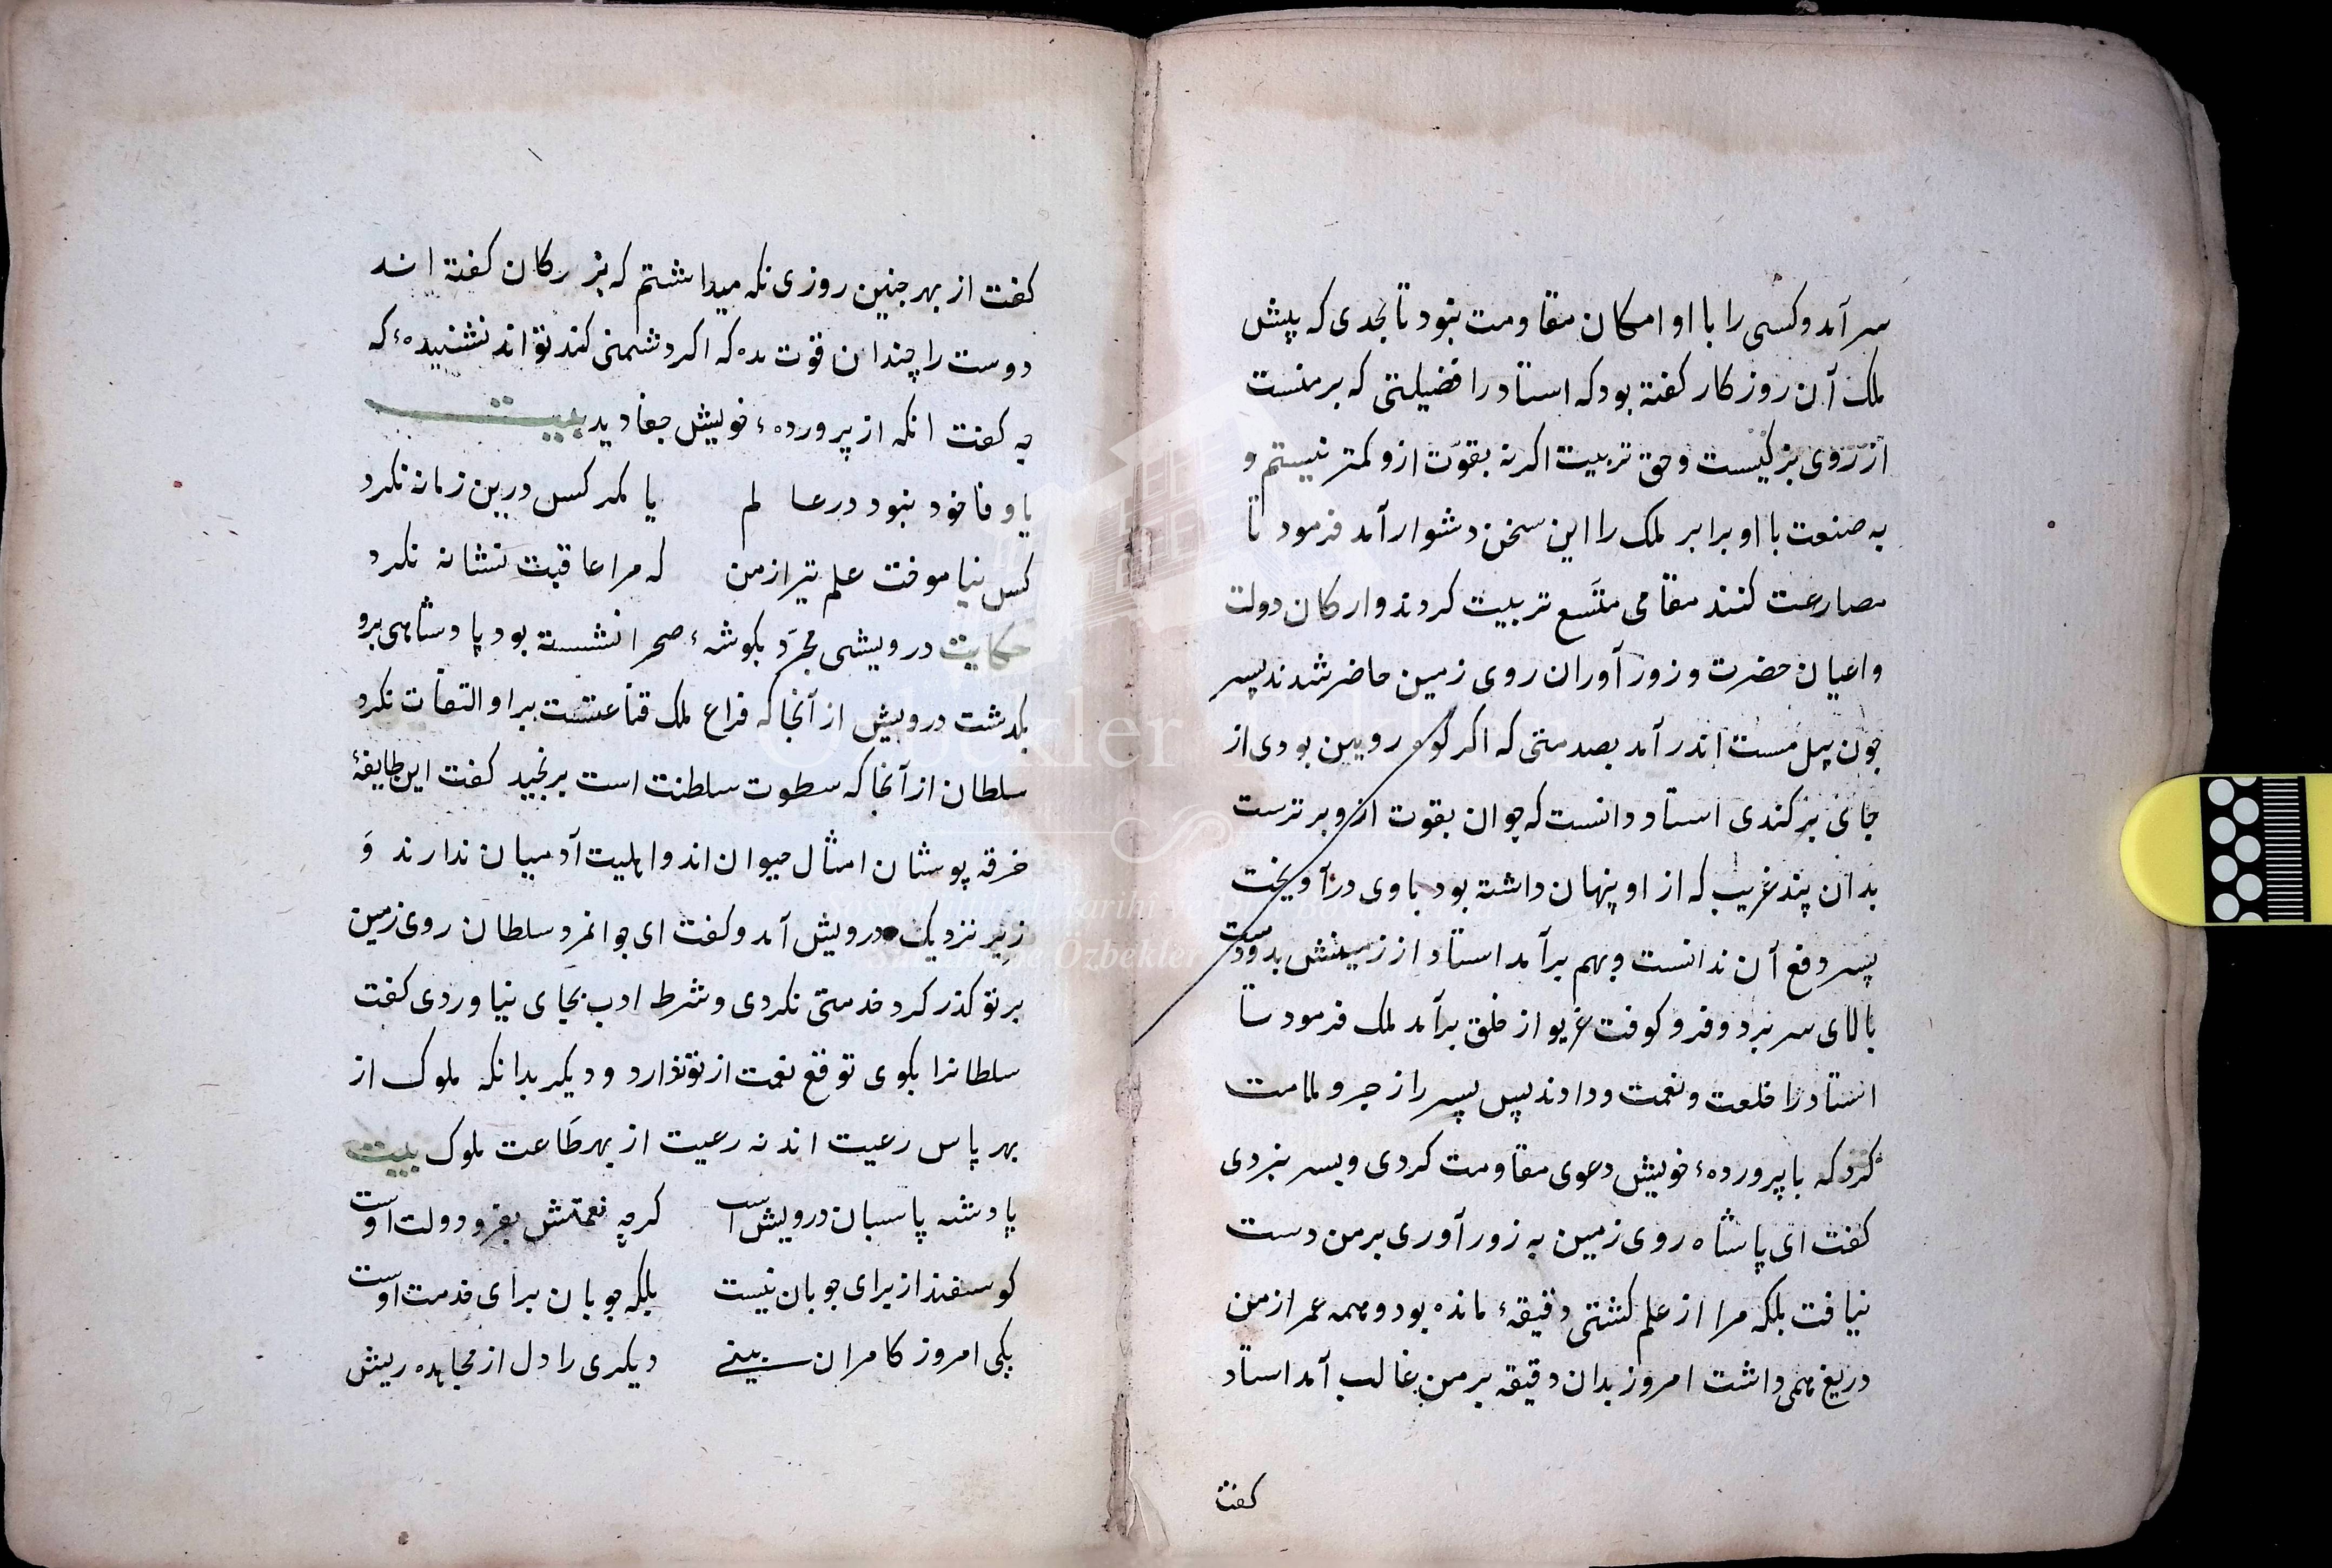 سر آمد و کسی را با او امکان مقاومت نبود تا بحدی که پیش
ملک آن روزکار کفته بود که استاد را فضیلتی که بر منست
از روی بزرکیست و حق تربیت اکر نه بقوّت ازو کمتر نیستم و
به صنعت با او برابر ملک را این سخن دشوار آمد فرمود تا
مصارعت کنند مقامی متّسع تربیت کردند و ارکان دولت
و اعیان حضرت و زور آوران روی زمین حاضر شدند پسر
چون پیل مست اندر آمد بصدمتی که اکر کوه رویین بودی از
جای بر کندی استاد دانست که جوان بقوت ازو برترست
بدان پند غریب که از او پنهان داشته بود با وی درآویخت
پسر دفع آن ندانست و بهم برآمد استاد از زمینش بدو دست
بالای سر برد و فرو کوفت غریو از خلق برآمد ملک فرمود تا
استاد را خلعت و نعمت و دادند پس پسر را زجر و ملامت
کرد که با پرورده‌ء خویش دعوی مقاومت کردی و بسر نبردی
کفت ای پاشاه روی زمین به زور آوری بر من دست
نیافت بلکه مرا از علم کشتی دقیقهٔ مانده بود و همه عمر از من
دریغ همی داشت امروز بدان دقیقه بر من غالب آمد استاد
کفت
کفت از بهر جنین روزی نکه میداشتم که بزرکان کفته اند
دوست را چندان قوت مده که اکر دشمنی کند تواند نشنیده‌ء که
چه کفت انکه از پرورده‌ء خویش جفا دید بیت
یا وفا خود نبود در عالم یا مکر کس درین زمانه نکرد
کس نیاموخت علم تیر از من که مرا عاقبت نشانه نکرد
حکایت درویشی مجرّد بکوشه‌ء صحرا نشسته بود پادشاهی برو
بکدشت درویش از آنجا که فراغ ملک قناعتست برا و التفات نکرد
سلطان از آنجا که سطوت سلطنت است برنجید کفت این طایفهٔ
خرقه پوشان امثال حیوان اند و اهلیت آدمیان ندارند وَ
زیر نزدیک درویش آمد و کفت ای جوانمرد سلطان روی زمین
بر تو کذر کرد خدمتی نکردی و شرط ادب بجای نیاوردی کفت
سلطانرا بکوی توقع نعمت از تو ندارد و دیکر بدانکه ملوک از
بهر پاس رعیت اند نه رعیت از بهر طَاعت ملوک بیت
پادشه پاسبان درویش است کرچه نعمتش بفر و دولت اوست
کوسفند از برای جوبان نیست بلکه جوبان برای خدمت اوست
یکی امروز کامران بینی دیکری را دل از مجاهده ریش